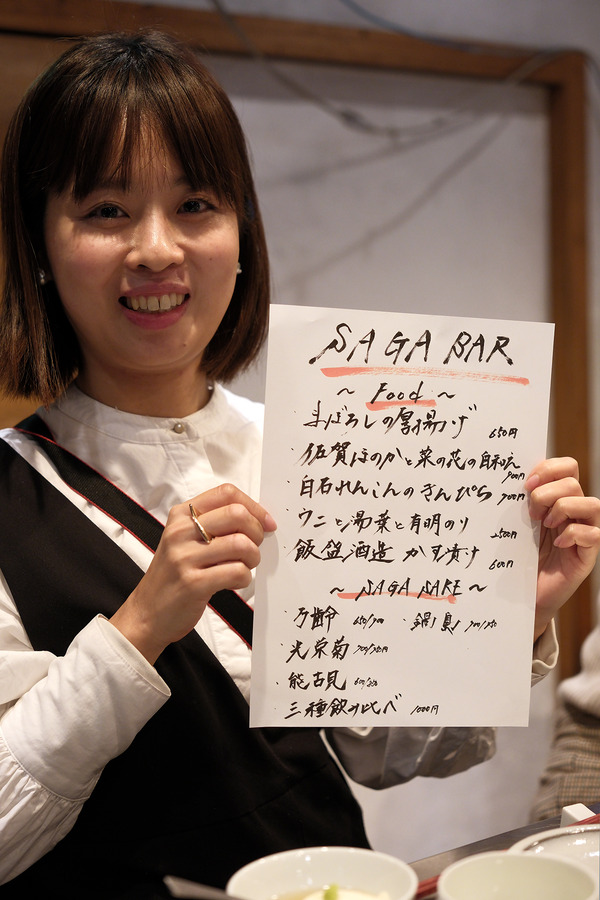 SAGA BAR
~ Food ~
・まぼろしの厚揚げ 650円
・佐賀ほのかと菜の花の白和え 700円
・白石れんこんのきんぴら 700円
・ウニと湯葉と有明のり 2500円
・飯盛酒造 かす漬け 600円
~ SAGA SAKE ~
・万齢 650/700 ・鍋島
・光栄菊
・能古見
・三種飲み比べ 1000円